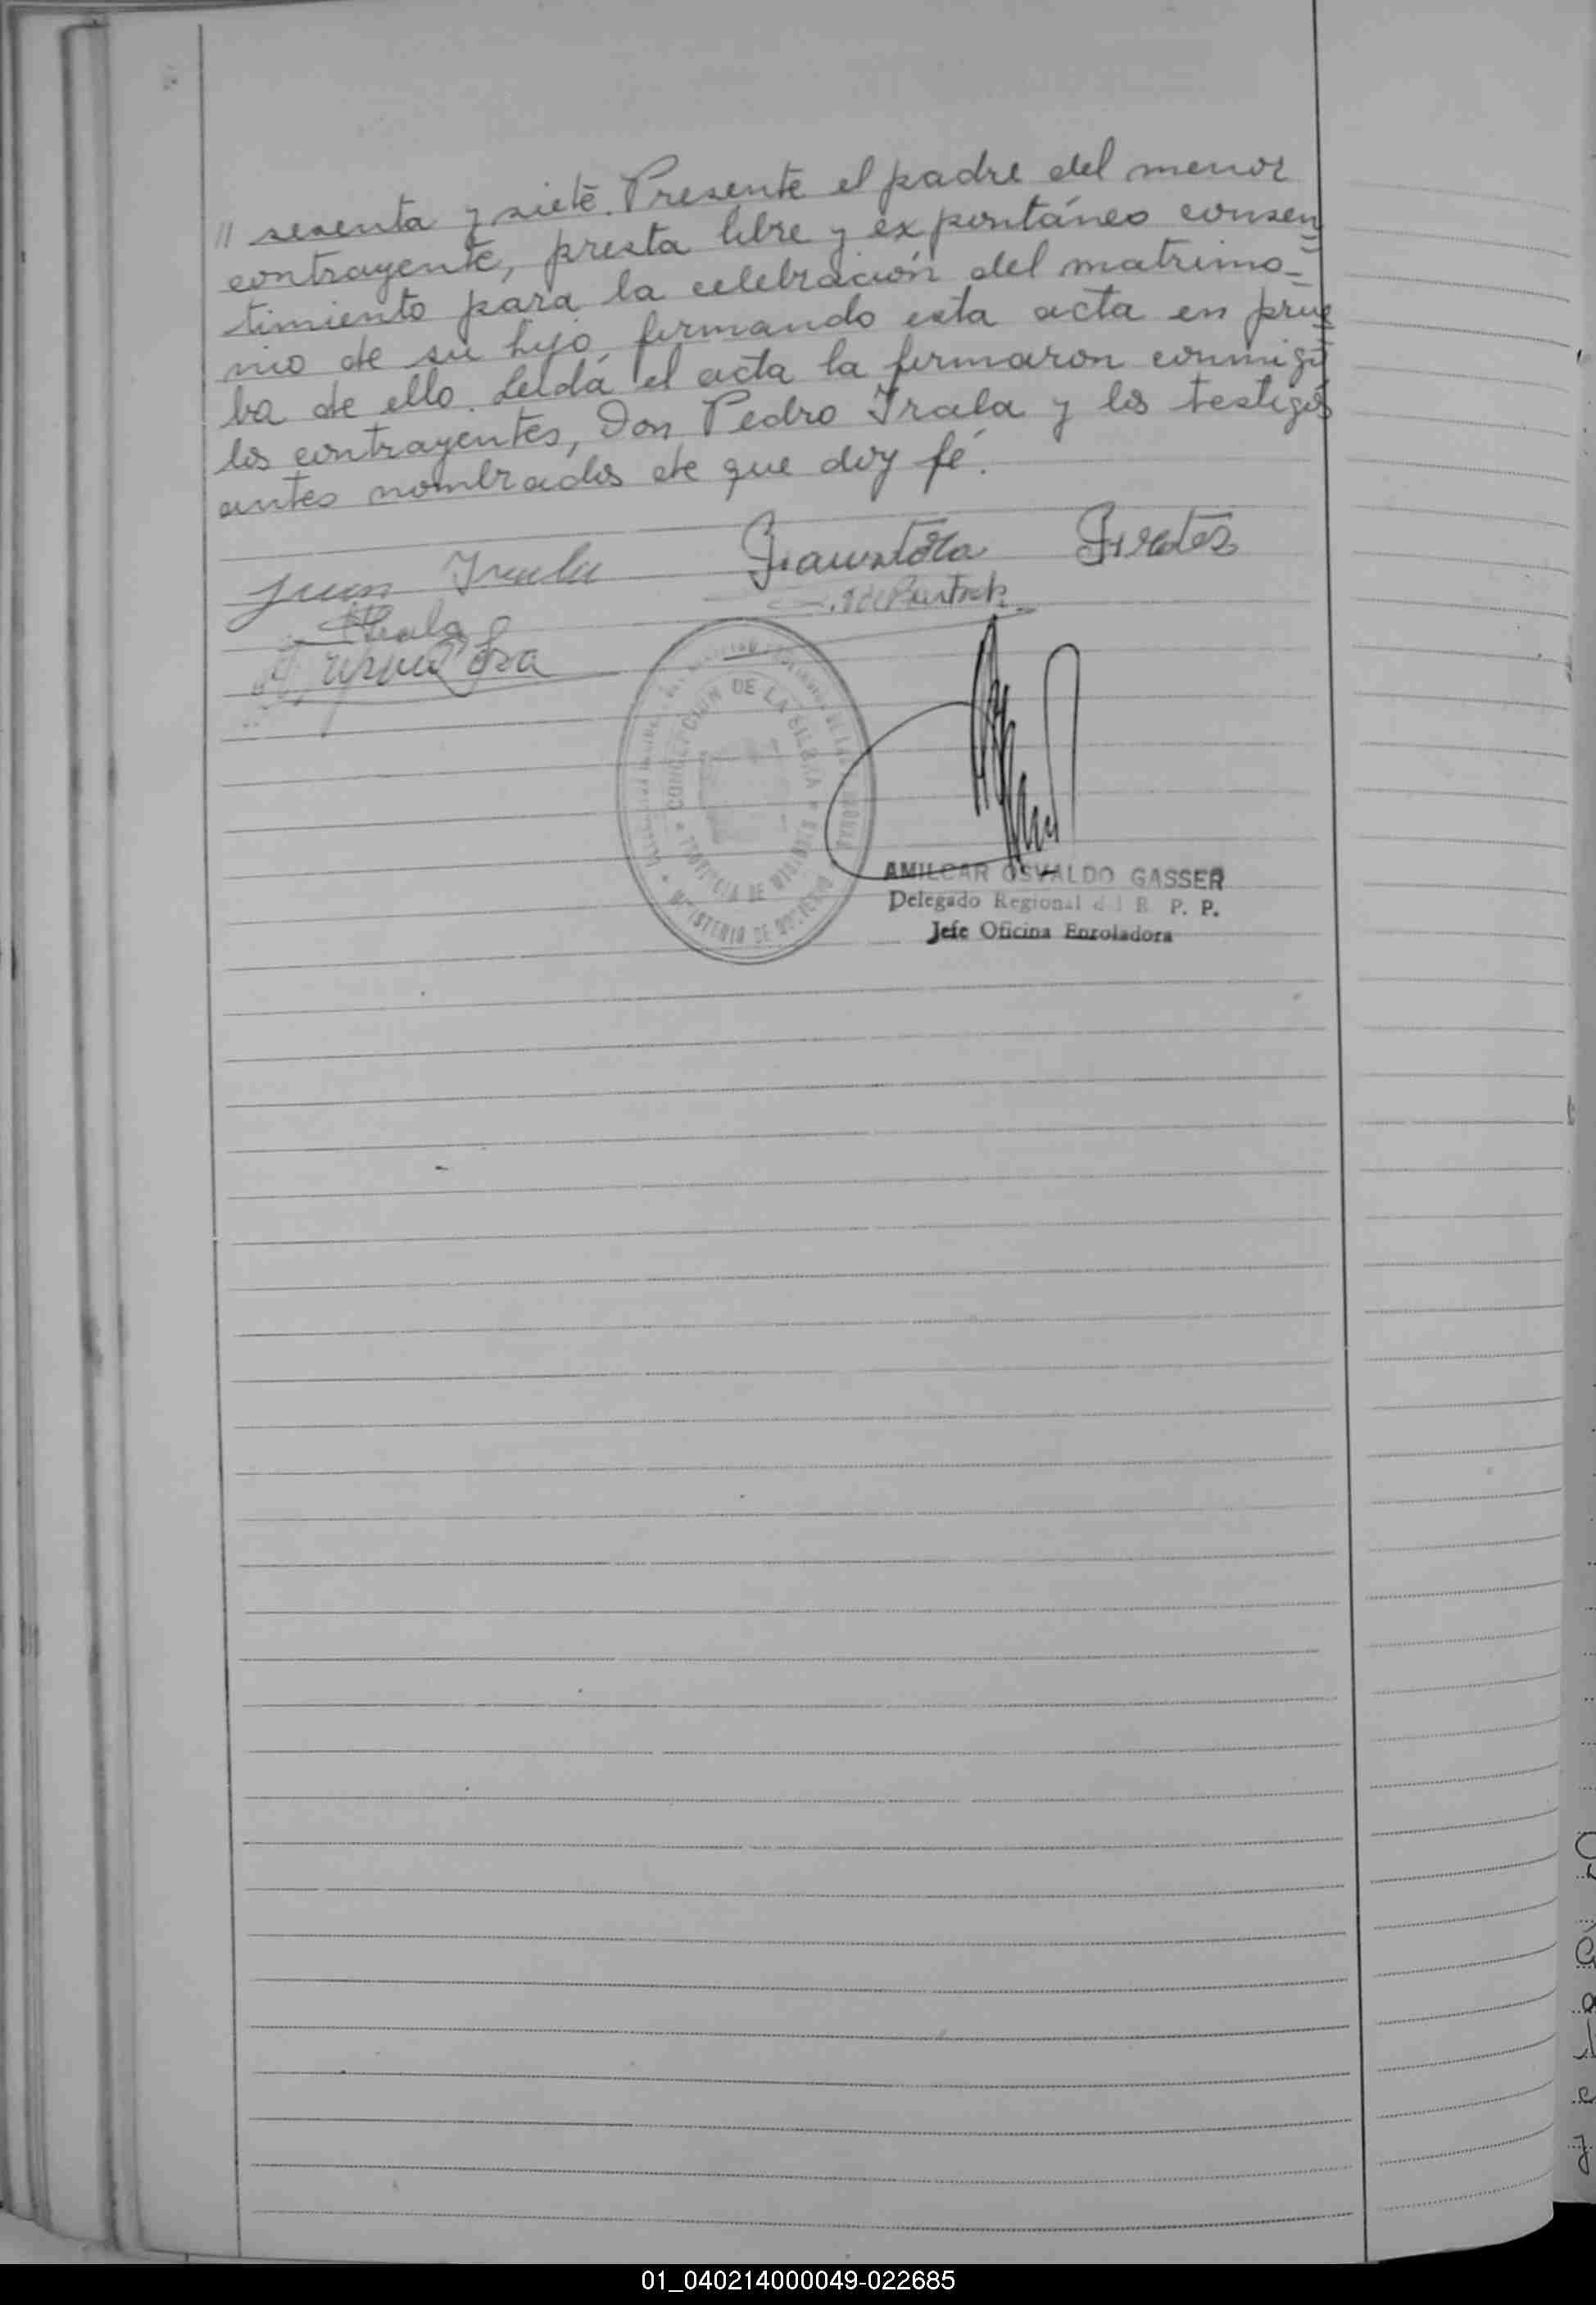 // sesenta y siete. Presente el padre del menor
contrayente, presta libre y expontáneo consen
timiento para la celebración del matrimo-
nio de su hijo, firmando esta acta en prue
ba de ello. Leída el acta la firmaron conmigo
los contrayentes, Don Pedro Irala y los testigos
antes nombrados de que doy fé.
Juan Irala Fraustosa Fretes
Irala
CONCEPCION DE LA SIERRA
PROVINCIA DE MISIONES
MINISTERIO DE GOBIERNO
AMILCAR OSVALDO GASSER
Delegado Regional del R. P. P.
Jefe Oficina Enroladora
01_040214000049-022685